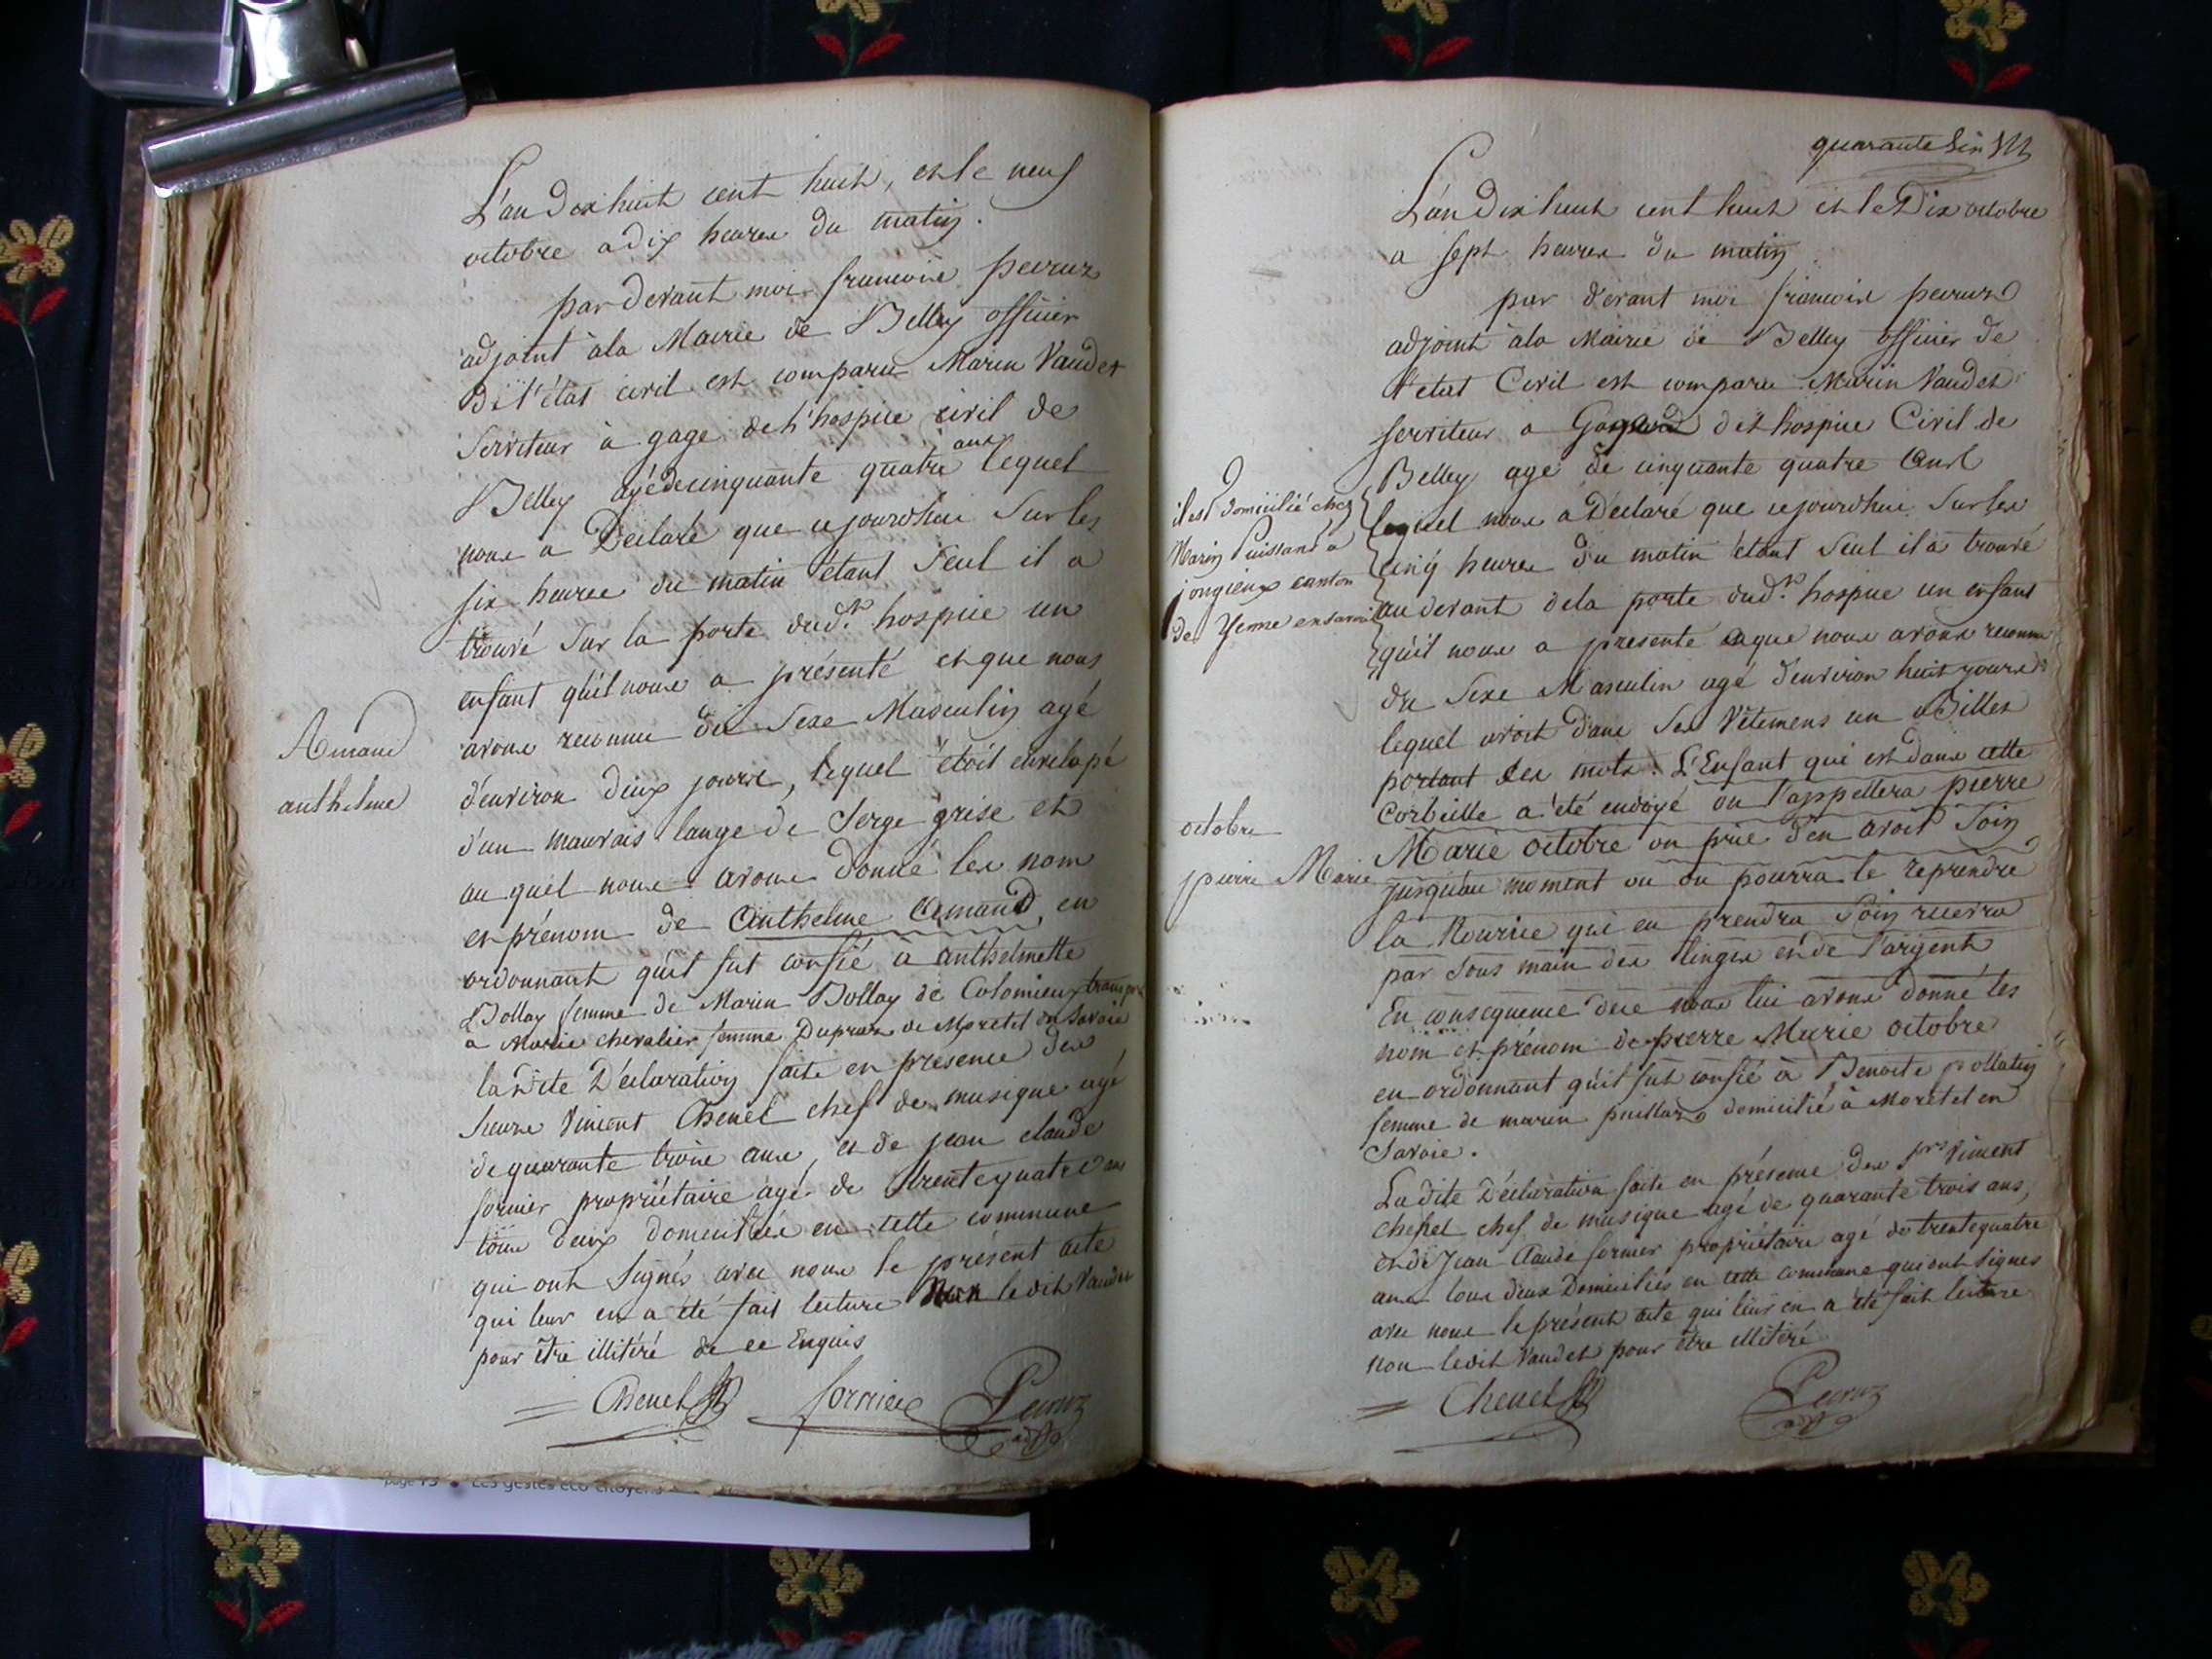 L'an dix huit cent huit, et le neuf
octobre a dix heures du matin.
par devant moi francois peeruz
adjoint à la Mairie de Belley officier
de l'état civil est comparu Marin Vaudet
Serviteur à gage de l'hospice civil de
Belley agé de cinquante quatre ans lequel
nous a Déclaré que cejourdhui Sur les
six heures du matin étant Seul il a
trouvé Sur la porte dud. hospice un
enfant qu'il nous a présenté et que nous
avons reconnu du Sexe Masculin agé
d'environ deux jours, lequel étoit envelopé
d'un mauvais lange de Serge grise et
au quel nous avons donné les nom
et prénom de Anthelme Armand, en
ordonnant qu'il fut confié à anthelmette
Bollay femme de Marin Bollay de Colomieux
a Marie chevalier femme Dupraz de Moretel en Savoie
la dite Déclaration faite en presence des
Sieurs Vincent Chenel chef de musique agé
de quarante trois ans, et de jean claude
fornier propriétaire agé de trente quatre ans
tous deux domiciliés en cette commune
qui ont Signés avec nous le présent acte
qui leur en a été fait lecture Non ledit Vaudet
pour être illitéré de ce Enquis
Chenel fornier Peeruz
Armand
anthelme
quarante Six
L'an dix huit cent huit et le Dix octobre
a sept heures du matin
par devant moi francois peeruz
adjoint à la Mairie de Belley officier de
l'etat Civil est comparu Marin Vaudet
serviteur a Gage de l'hospice Civil de
Belley agé de cinquante quatre ans
lequel nous a Déclaré que cejourdhui Sur les
cinq heures du matin étant Seul il a trouvé
au devant de la porte dud. hospice un enfant
qu'il nous a presenté et que nous avons reconnu
du Sexe Masculin agé d'environ huit jours
lequel avoit dans Ses Vêtemens un Billet
portant Ces mots: L'Enfant qui est dans cette
Corbeille a été endoyé on l'appellera pierre
Marie octobre on prie d'en avoir Soin
jusqu'au moment ou on pourra le reprendre
la Nourrice qui en prendra Soin recevra
par Sous main des linges et de l'argent
En consequence de ce nous lui avons donné les
nom et prénom de pierre Marie octobre
en ordonnant qu'il fut confié à Benoite pollatin
femme de marin puillard domicilié à Moretel en
Savoie.
La dite Déclaration faite en présence des Srs Vincent
chenel chef de musique agé de quarante trois ans,
et de Jean Claude fornier propriétaire agé de trente quatre
ans tous deux Domiciliés en cette commune qui ont Signés
avec nous le présent acte qui leur en a été fait lecture
non ledit Vaudet pour être illitéré
Chenel Peeruz
il est domicilié chez
Marin Puissant à
jongieux canton
de Yenne en savoie
octobre
pierre Marie
page 15 • Les gestes éco-citoyens